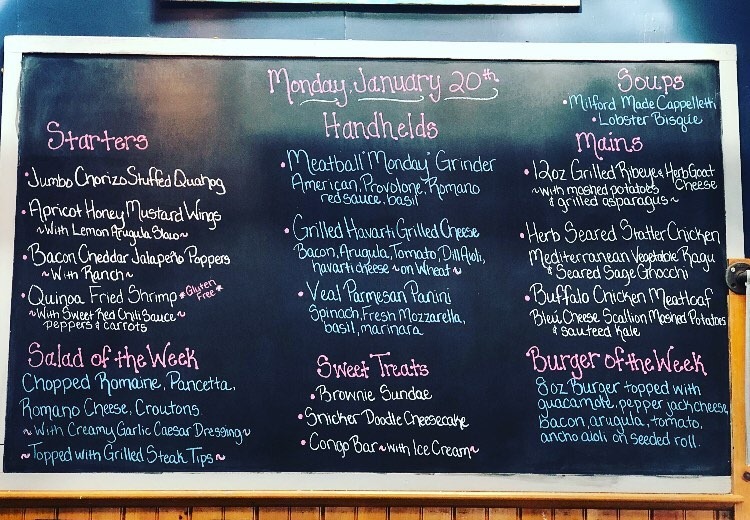 Monday, January 20th
Starters
• Jumbo Chorizo Stuffed Quahog
• Apricot Honey Mustard Wings
~With Lemon Arugula Slaw~
• Bacon Cheddar Jalapeño Poppers
~With Ranch~
• Quinoa Fried Shrimp *Gluten Free*
~With Sweet Red Chili Sauce~
peppers & carrots
Salad of the Week
Chopped Romaine, Pancetta,
Romano Cheese, Croutons
~With Creamy Garlic Caesar Dressing~
~Topped with Grilled Steak Tips~
Handhelds
• Meatball "Monday" Grinder
American, Provolone, Romano
red sauce, basil
• Grilled Havarti Grilled Cheese
Bacon, Arugula, Tomato, Dill Aioli,
havarti cheese ~on Wheat~
• Veal Parmesan Panini
Spinach, Fresh Mozzarella,
basil, marinara
Sweet Treats
• Brownie Sundae
• Snicker Doodle Cheesecake
• Congo Bar ~with Ice Cream~
Soups
• Milford Made Cappelletti
• Lobster Bisque
Mains
• 12oz Grilled Ribeye & Herb Goat Cheese
~With mashed potatoes
& grilled asparagus~
• Herb Seared Statler Chicken
Mediterranean Vegetable Ragu
& Seared Sage Gnocchi
• Buffalo Chicken Meatloaf
Bleu Cheese Scallion Mashed Potatoes
& sauteed Kale
Burger of the Week
8oz Burger topped with
guacamole, pepper jack cheese,
Bacon, arugula, tomato,
ancho aioli on seeded roll.